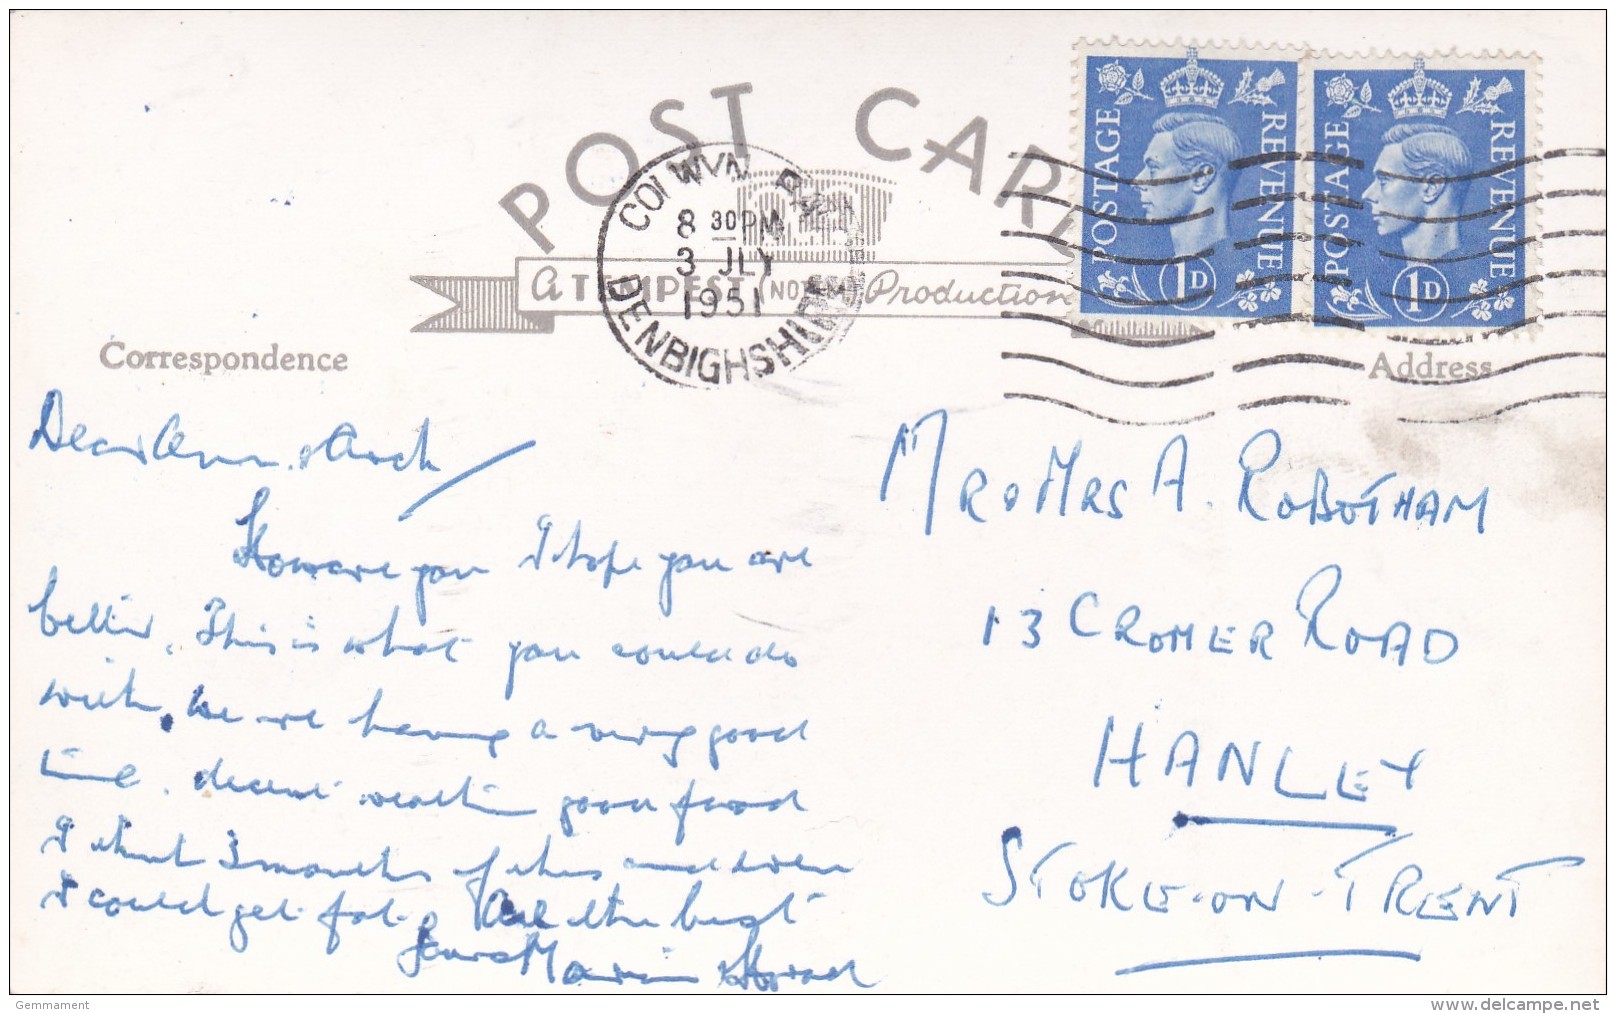 POST CARD
A TEMPEST Production
COLWYN BAY
8 30 PM
3 JLY
1951
DENBIGHSHIRE
POSTAGE REVENUE
1D
POSTAGE REVENUE
1D
Correspondence
Address
Dear Ann & Arch
How are you I hope you are
better. This is what you could do
with, we are having a very good
time. decent weather good food
I think 3 months of this and even
I could get fat. All the best
Yours
MR & MRS A. ROBOTHAM
13 CROMER ROAD
HANLEY
STOKE-ON-TRENT
Gemmament
www.delcampe.net